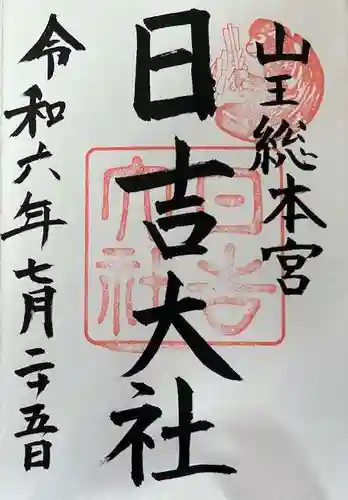 山王総本宮
日吉大社
令和六年七月二十五日
日吉大社